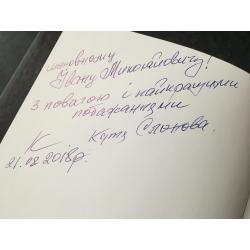 Шановному
Івану Миколайовичу!
З повагою і найкращими
побажаннями
Слонова.
21.02.2018р.